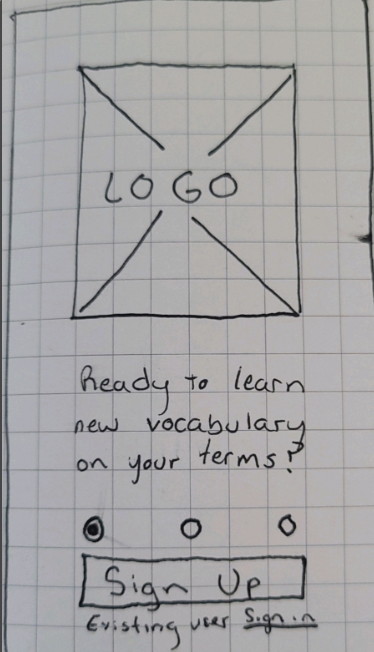 LOGO
Ready to learn
new vocabulary
on your terms?
Sign Up
Existing user Sign in